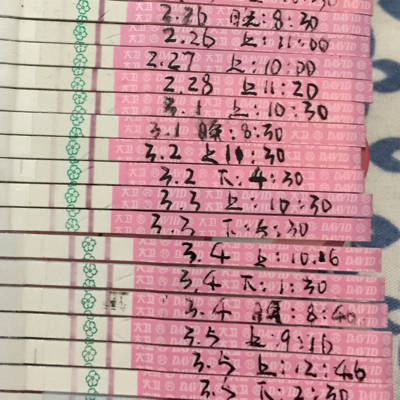 2.26 晚:8:30
2.26 上:11:00
2.27 上:10:00
2.28 上11:20
3.1 上:10:30
3.1 晚:8:30
3.2 上11:30
3.2 下:4:30
3.3 上:10:30
3.3 下:5:30
3.4 上:10.16
3.4 下:1:30
3.4 晚:8:40
3.5 上:9:16
3.5 上:12:46
3.5 下:2:30